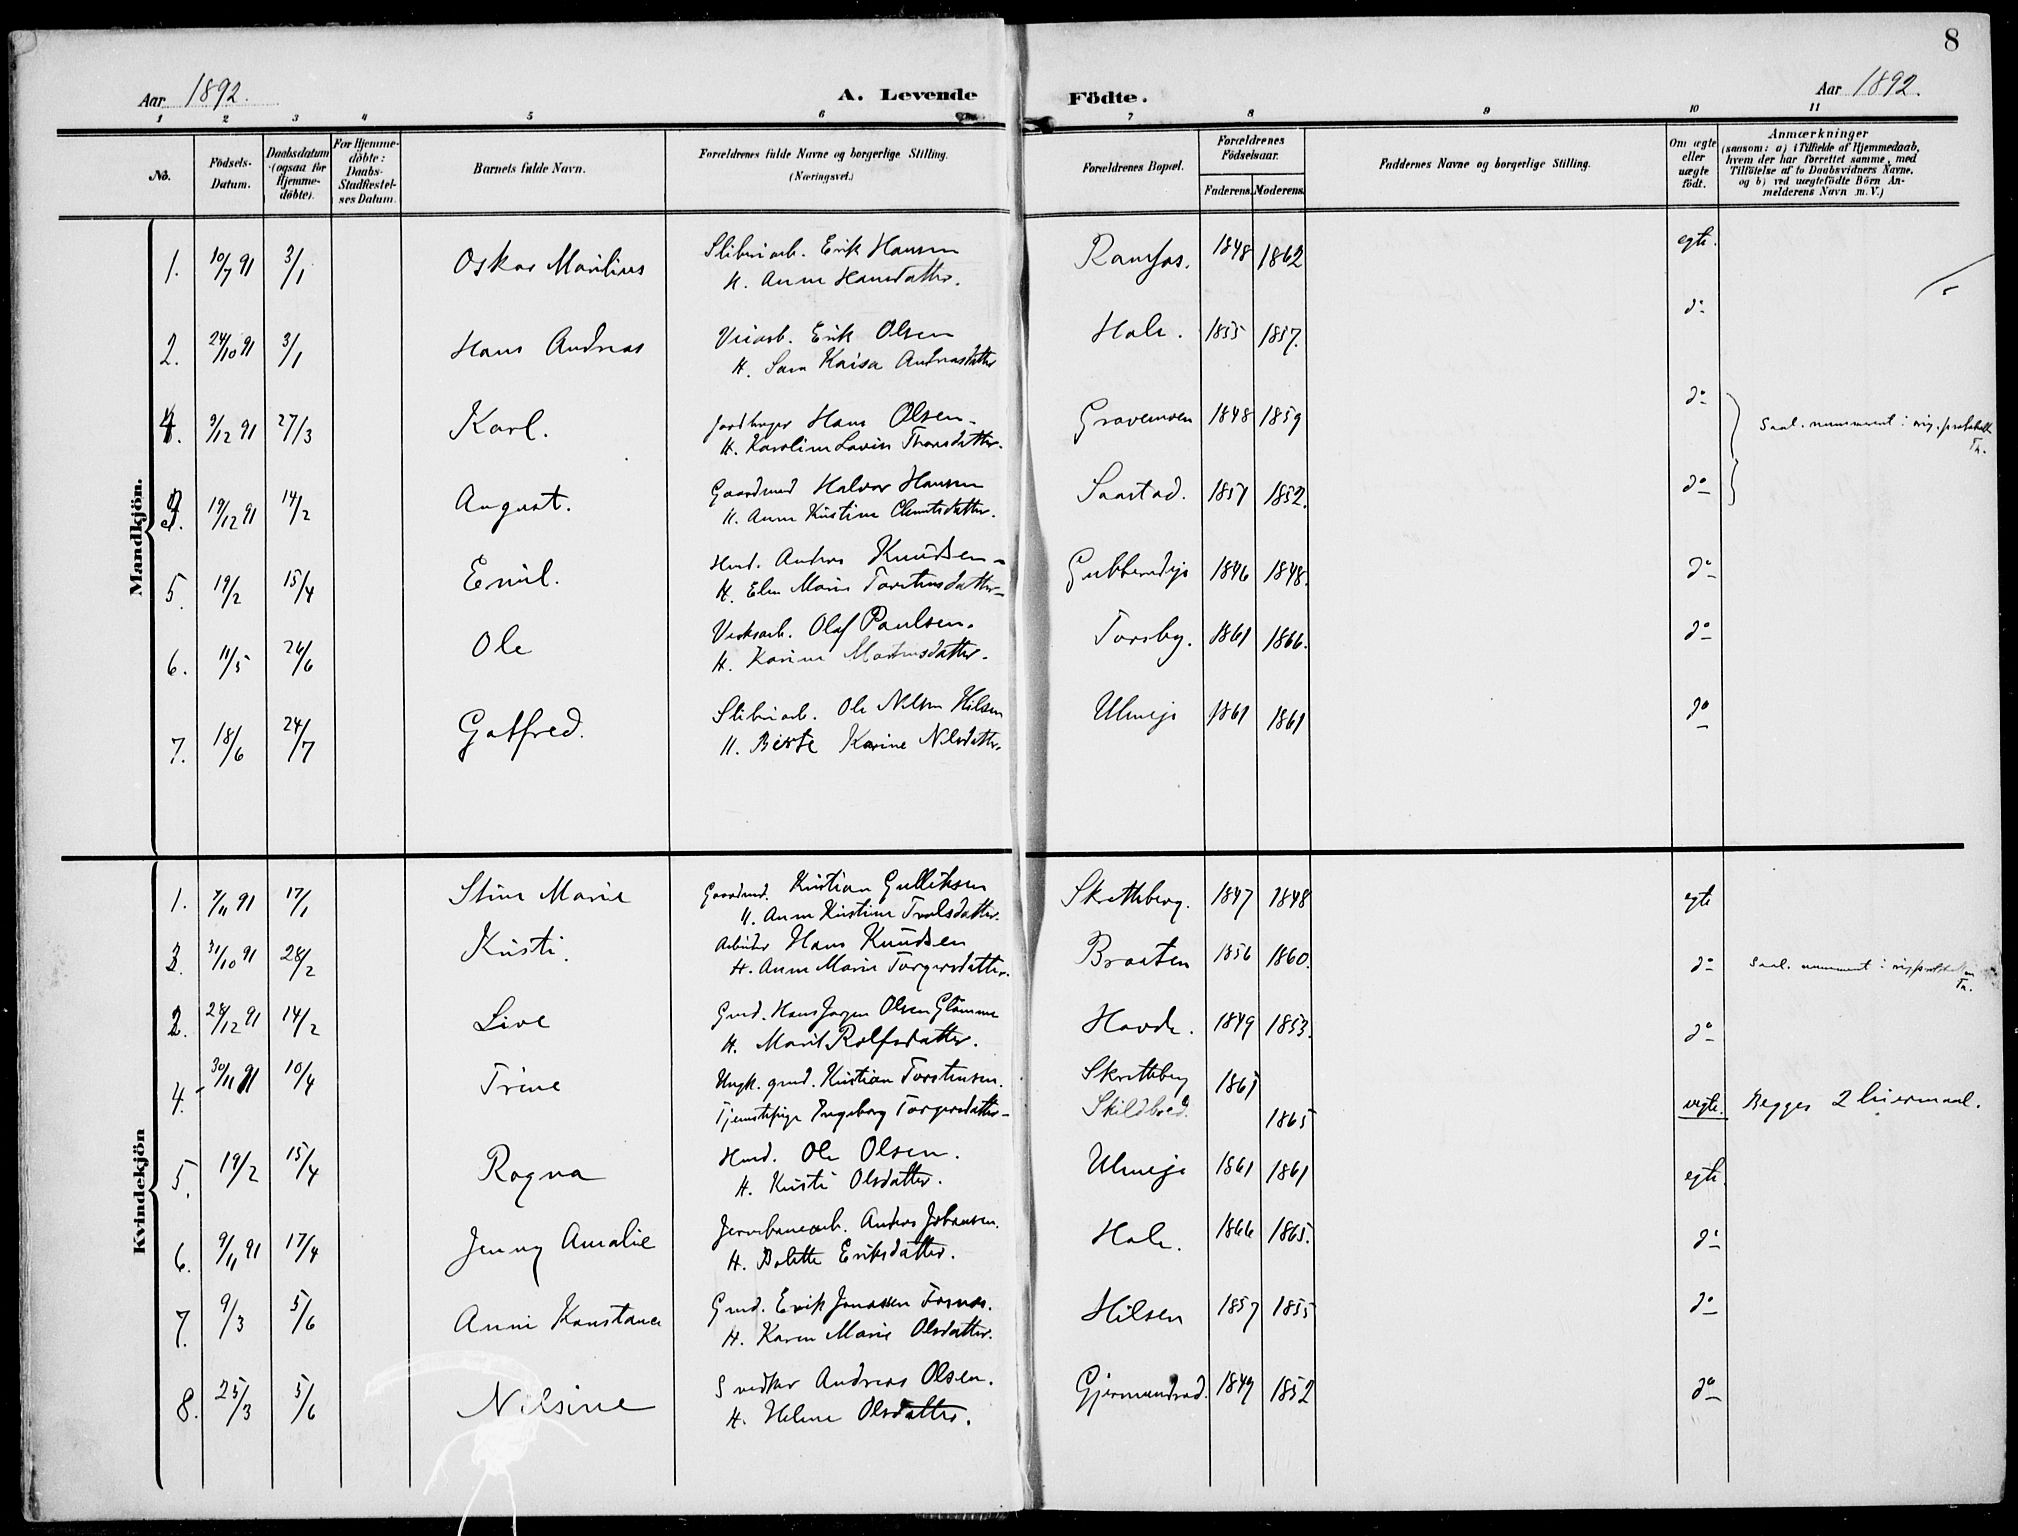 8
Aar 1892.
A. Levende Födte.
Aar 1892.
1 2 3 4 5 6 7 8 9 10 11
No.
Födsels-Datum.
Daabsdatum (ogsaa for Hjemmedöbte).
For Hjemmedöbte: Daabs-Stadfæstelses Datum.
Barnets fulde Navn.
Forældrenes fulde Navne og borgerlige Stilling. (Næringsvei.)
Forældrenes Bopæl.
Forældrenes Födselsaar.
Faderens. Moderens.
Faddernes Navne og borgerlige Stilling.
Om ægte eller uægte födt.
Anmærkninger (saasom: a) i Tilfælde af Hjemmedaab, hvem der har forrettet samme, med Tilföielse af to Daabsvidners Navne, og b) ved uægtefödte Börn Anmelderens Navn m. V.)
Mandkjön.
1. 10/7 91 3/1 Oskar Marilius Sliberiarb. Erik Hansen Ramfos. 1848 1862 egte.
H. Anne Hansdatter.
2. 24/10 91 3/1 Hans Andreas Veiarb. Erik Olsen Hole. 1855 1857. do
H. Sara Kaisa Andreasdatter
4. 9/12 91 27/3 Karl. Jordbruger Hans Olsen. Gravemoen 1848 1859 do Saal. nummerert i orig. protokoll
H. Karoline Lovise Thorsdatter.
3. 19/12 91 14/2 August. Gaardmand Halvor Hansen Saastad. 1857 1852. do
H. Anne Kristine Clemetsdatter.
5. 19/2 15/4 Emil. Hmd. Anders Knudsen Gubberudeje 1846 1848. do
H. Elen Marie Torstensdatter
6. 11/5 26/6 Ole Verksarb. Olaf Paulsen. Torsby. 1861 1866. do
H. Karine Martinsdatter.
7. 18/6 24/7 Gotfred. Sliberiarb. Ole Nilsen Hilsen Ulveeje 1861 1861 do
H. Berte Karine Nilsdatter.
Kvindekjön
1. 7/11 91 17/1 Stine Marie Gaardmd. Kristian Gulliksen Skretteberg. 1847 1848 egte
H. Anne Kristine Trulsdatter.
3. 31/10 91 28/2 Kristi. Arbeider Hans Knudsen Braaten 1856 1860. do Saal. nummerert i
H. Anne Marie Torgersdatter.
2. 28/12 91 14/2 Live Gmd. Hans Jørgen Olsen Glømme Hovde. 1849 1853. do
H. Marit Rolfsdatter.
4. 30/11 91 10/4 Trine Ungk. gmd. Kristian Torstensen. Skretteberg 1861
Tjenestepige Ingeborg Torgersdatter Skildbred. 1865 uegte. Begges 2 leiermaal.
5. 19/2 15/4 Ragna Hmd. Ole Olsen. Ulveeje 1861 1861 egte.
H. Kristi Olsdatter.
6. 9/11 91 17/4 Jenny Amalie Jernbanearb. Anders Johansen. Hole. 1866 1865. do
H. Bolette Eriksdatter.
7. 9/3 5/6 Anni Konstance Gmd. Erik Jonassen Hilsen 1857 1855 do
H. Karen Marie Olsdatter.
8. 25/3 5/6 Nilsine Snedker Andreas Olsen. Gjermundrud. 1849 1852 do
H. Helene Olsdatter.